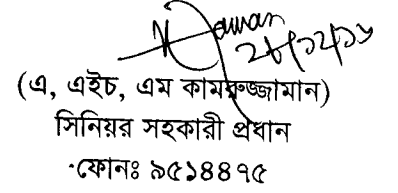 ২৮/১২/১৬
(এ, এইচ, এম কামরুজ্জামান)
সিনিয়র সহকারী প্রধান
ফোনঃ ৯৫১৪৪৭৫